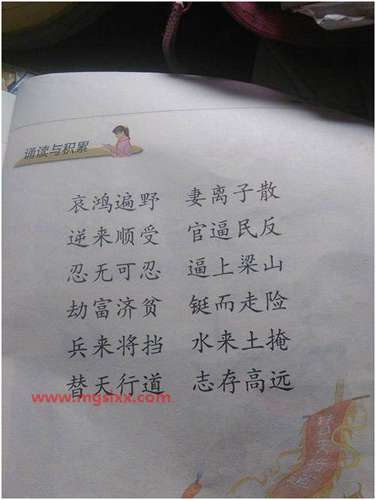 诵读与积累
哀鸿遍野 妻离子散
逆来顺受 官逼民反
忍无可忍 逼上梁山
劫富济贫 铤而走险
兵来将挡 水来土掩
替天行道 志存高远
www.mgsixx.com